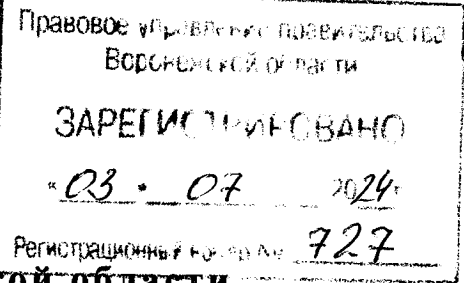 Правовое управление правительства
Воронежской области
ЗАРЕГИСТРИРОВАНО
"03" 07 2024г
Регистрационный номер № 727
ой области